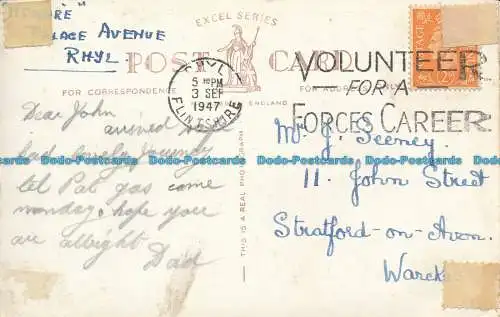 EXCEL SERIES
RÉ"
PALACE AVENUE
RHYL
POST CARD
FOR CORRESPONDENCE
FOR ADDRESS
ENGLAND
RHYL
5 PM
3 SEP
1947
FLINTSHIRE
VOLUNTEER
FOR A
FORCES CAREER
POSTAGE
THIS IS A REAL PHOTOGRAPH
Dear John
arrived
had lovely journey
tel Pat gas came
monday. hope you
are allright
Dad
Mr J. Seeney.
11. John Street
Stratford-on-Avon.
Warcks
Dodo-Postcards.com Dodo-Postcards.com Dodo-Postcards.com Dodo-Postcards.com